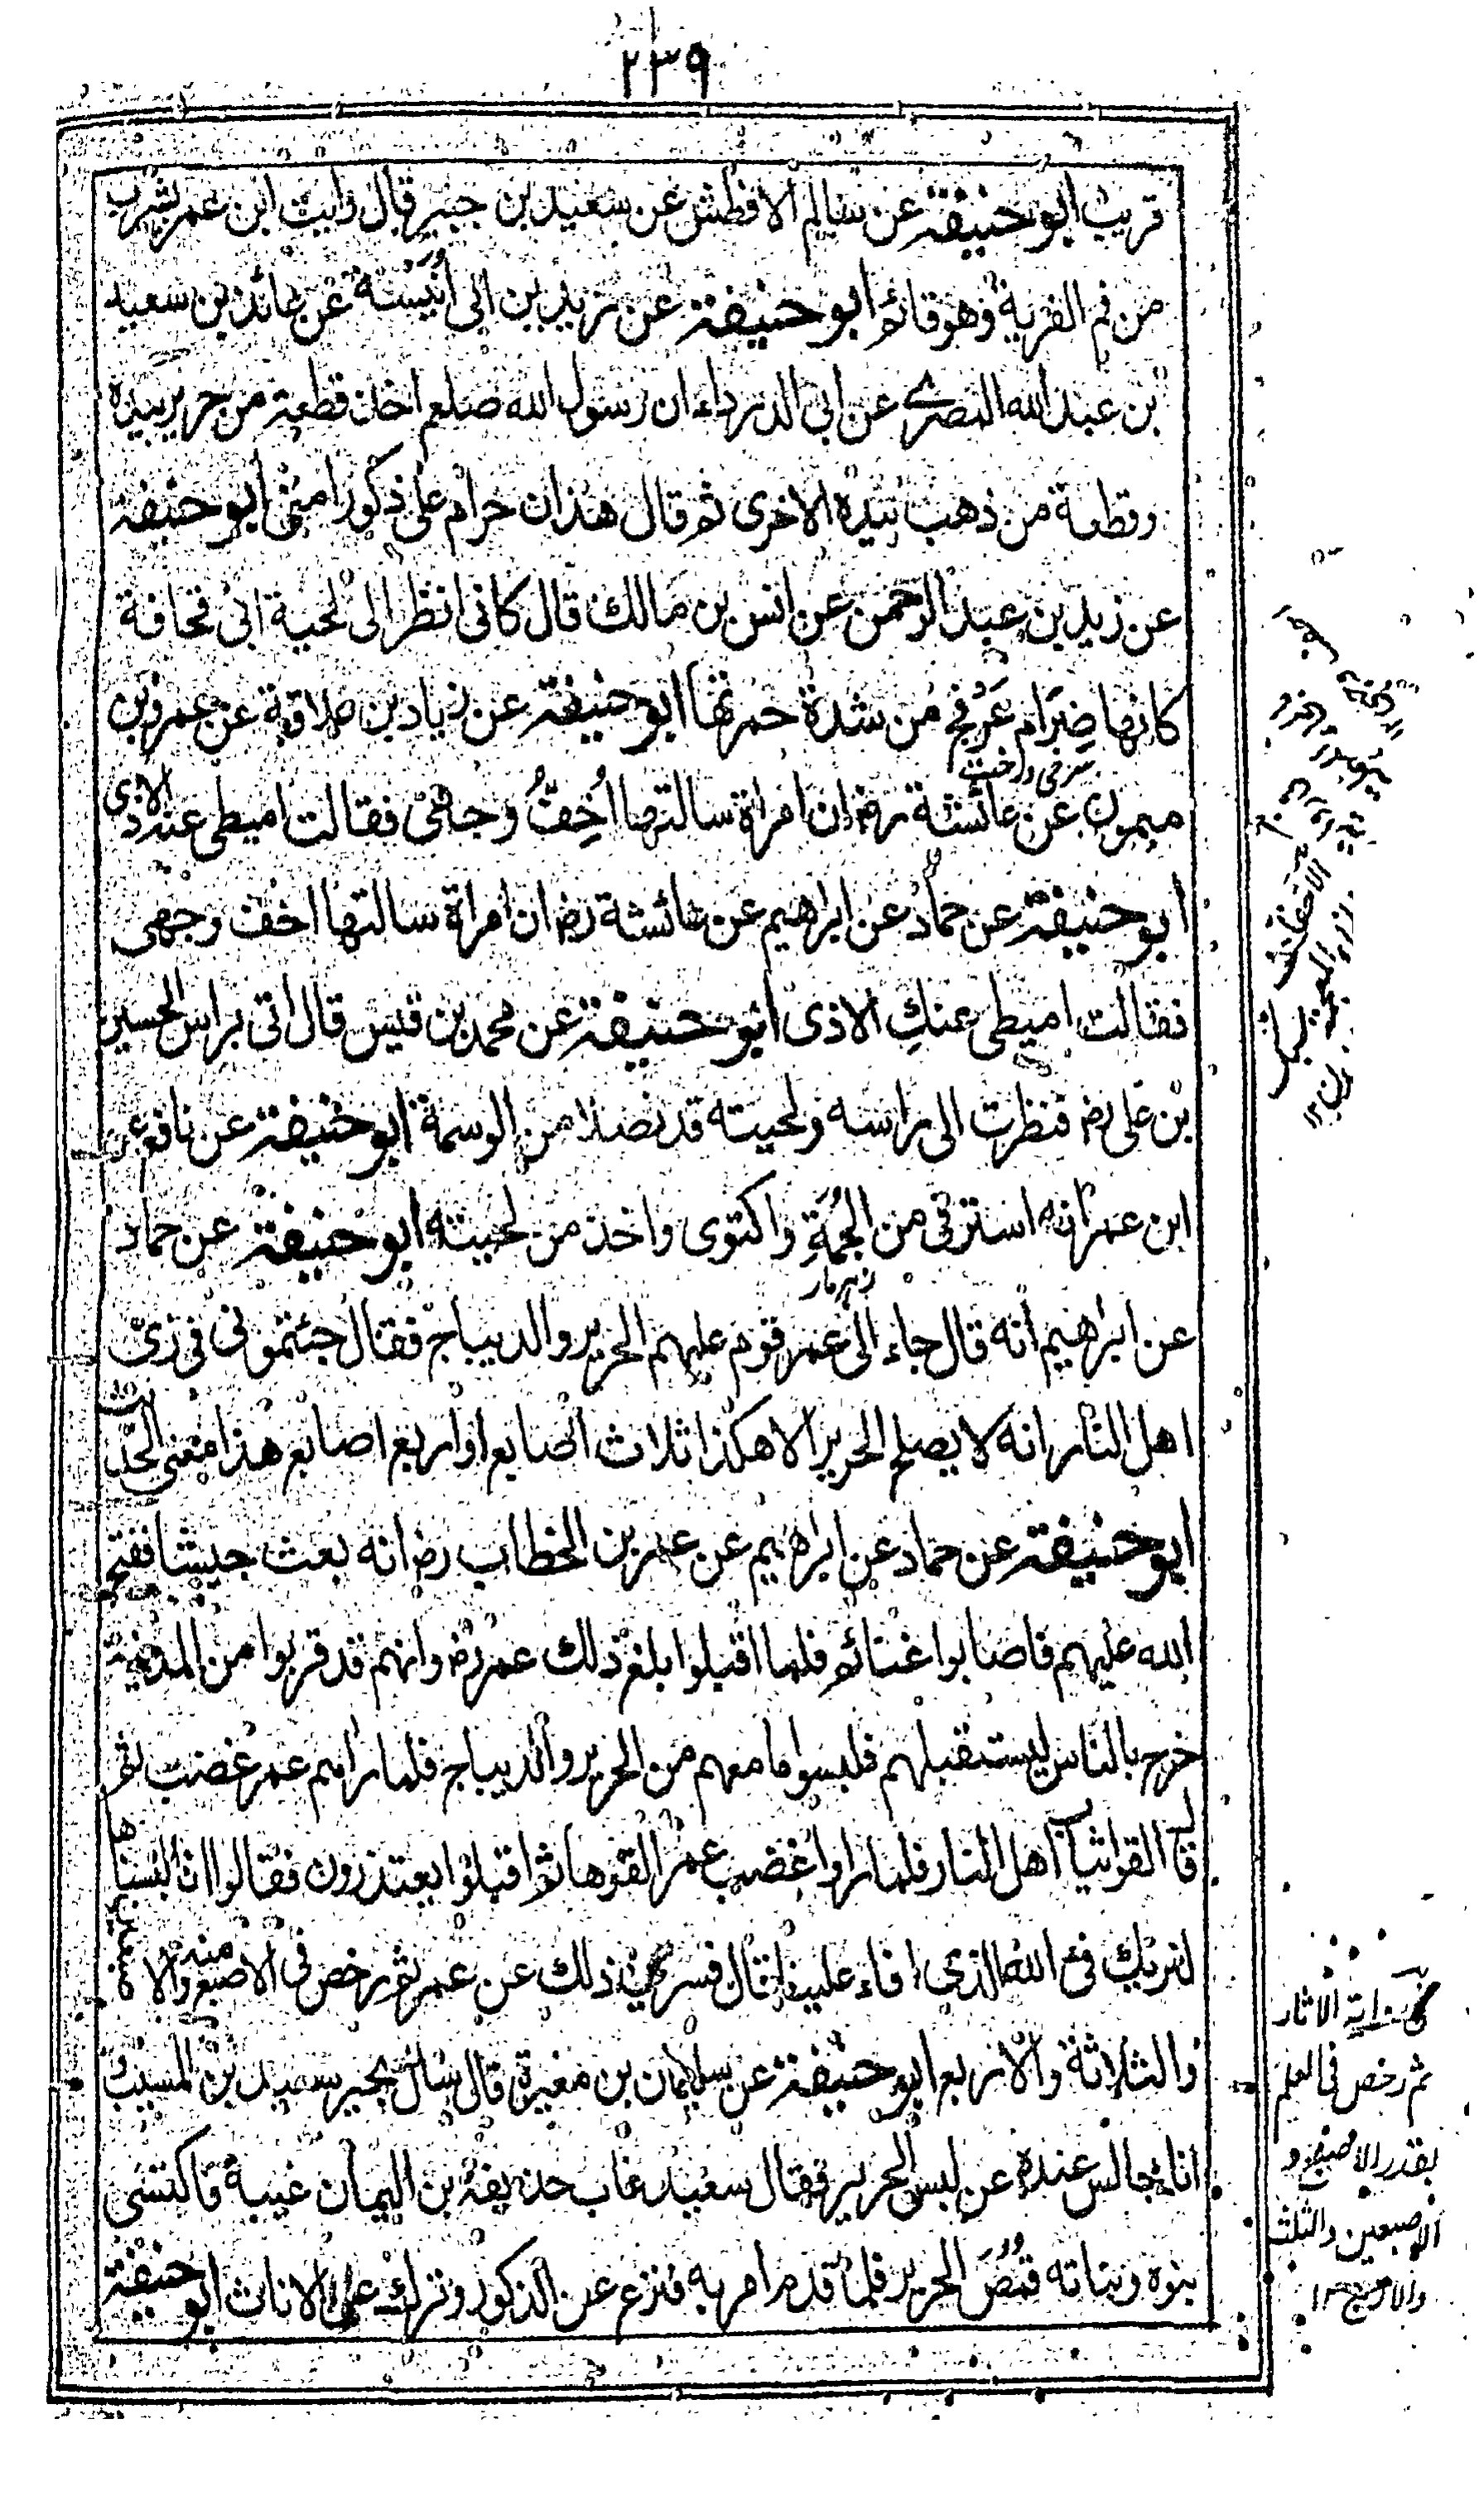 ٢٣٩
قريب ابو حنيفة عن سالم الافطس عن سعيد بن جبير قال رايت ابن عمر يشرب
من فم القربة وهو قائم ابو حنيفة عن زيد بن ابى انيسة عن عائذ بن سعيد
بن عبد الله النصرى عن ابى الدرداء ان رسول الله صلعم اخذ قطعة من حرير بيده
وقطعة من ذهب بيده الاخرى ثم قال هذان حرام على ذكور امتى ابو حنيفة
عن زيد بن عبد الرحمن عن انس بن مالك قال كانى انظر الى لحية ابى قحافة
كانها ضِرَام عَرْفج من شدة حمرتها ابو حنيفة عن زياد بن علاقة عن عمرو بن
ميمون عن عائشة رض ان امراة سالتها اَحُفُّ وجهى فقالت اميطى عنك الاذى
ابو حنيفة عن حماد عن ابراهيم عن عائشة رض ان امراة سالتها احف وجهى
فقالت اميطى عنكِ الاذى ابو حنيفة عن محمد بن قيس قال اتى براس الحسين
بن على رض فنظرت الى راسه ولحيته قد نصلا من الوسمة ابو حنيفة عن نافع عن
ابن عمر انه استرقى من الحُمَةِ واكتوى واخذ من لحيته ابو حنيفة عن حماد
زهر مار
عن ابراهيم انه قال جاء الى عمر قوم عليهم الحرير والديباج فقال جئتمونى فى زىّ
اهل النار انه لا يصلح الحرير الا هكذا ثلاث اصابع او اربع اصابع هذا معنى الحديث
ابو حنيفة عن حماد عن ابراهيم عن عمر بن الخطاب رض انه بعث جيشا ففتح
الله عليهم فاصابوا غنائم فلما اقبلوا بلغ ذلك عمر رض وانهم قد قربوا من المدينة
خرج بالناس ليستقبلهم فلبسوا ما معهم من الحرير والديباج فلما راهم عمر غضب ثم
قال القوا ثياب اهل النار فلما راوا غضب عمر القوها ثم اقبلوا يعتذرون فقالوا انا لبسناها
لنريك فئ الله الذى افاء علينا قال فسرى ذلك عن عمر ثم رخص فى الاصبع منه والاصبعين
والثلاثة والاربع ابو حنيفة عن سليمان بن مغيرة قال سال بجير سعيد بن المسيب و
انا جالس عنده عن لبس الحرير فقال سعيد غاب حذيفة بن اليمان غيبة فاكتسى
بنوه وبناته قُمُصَ الحرير فلما قدم امر به فنزع عن الذكور وترك على الاناث ابو حنيفة
الاثار
ثم رخص فى العلم
بقدر الاصبع و
الاصبعين والثلث
والاربع ١٢